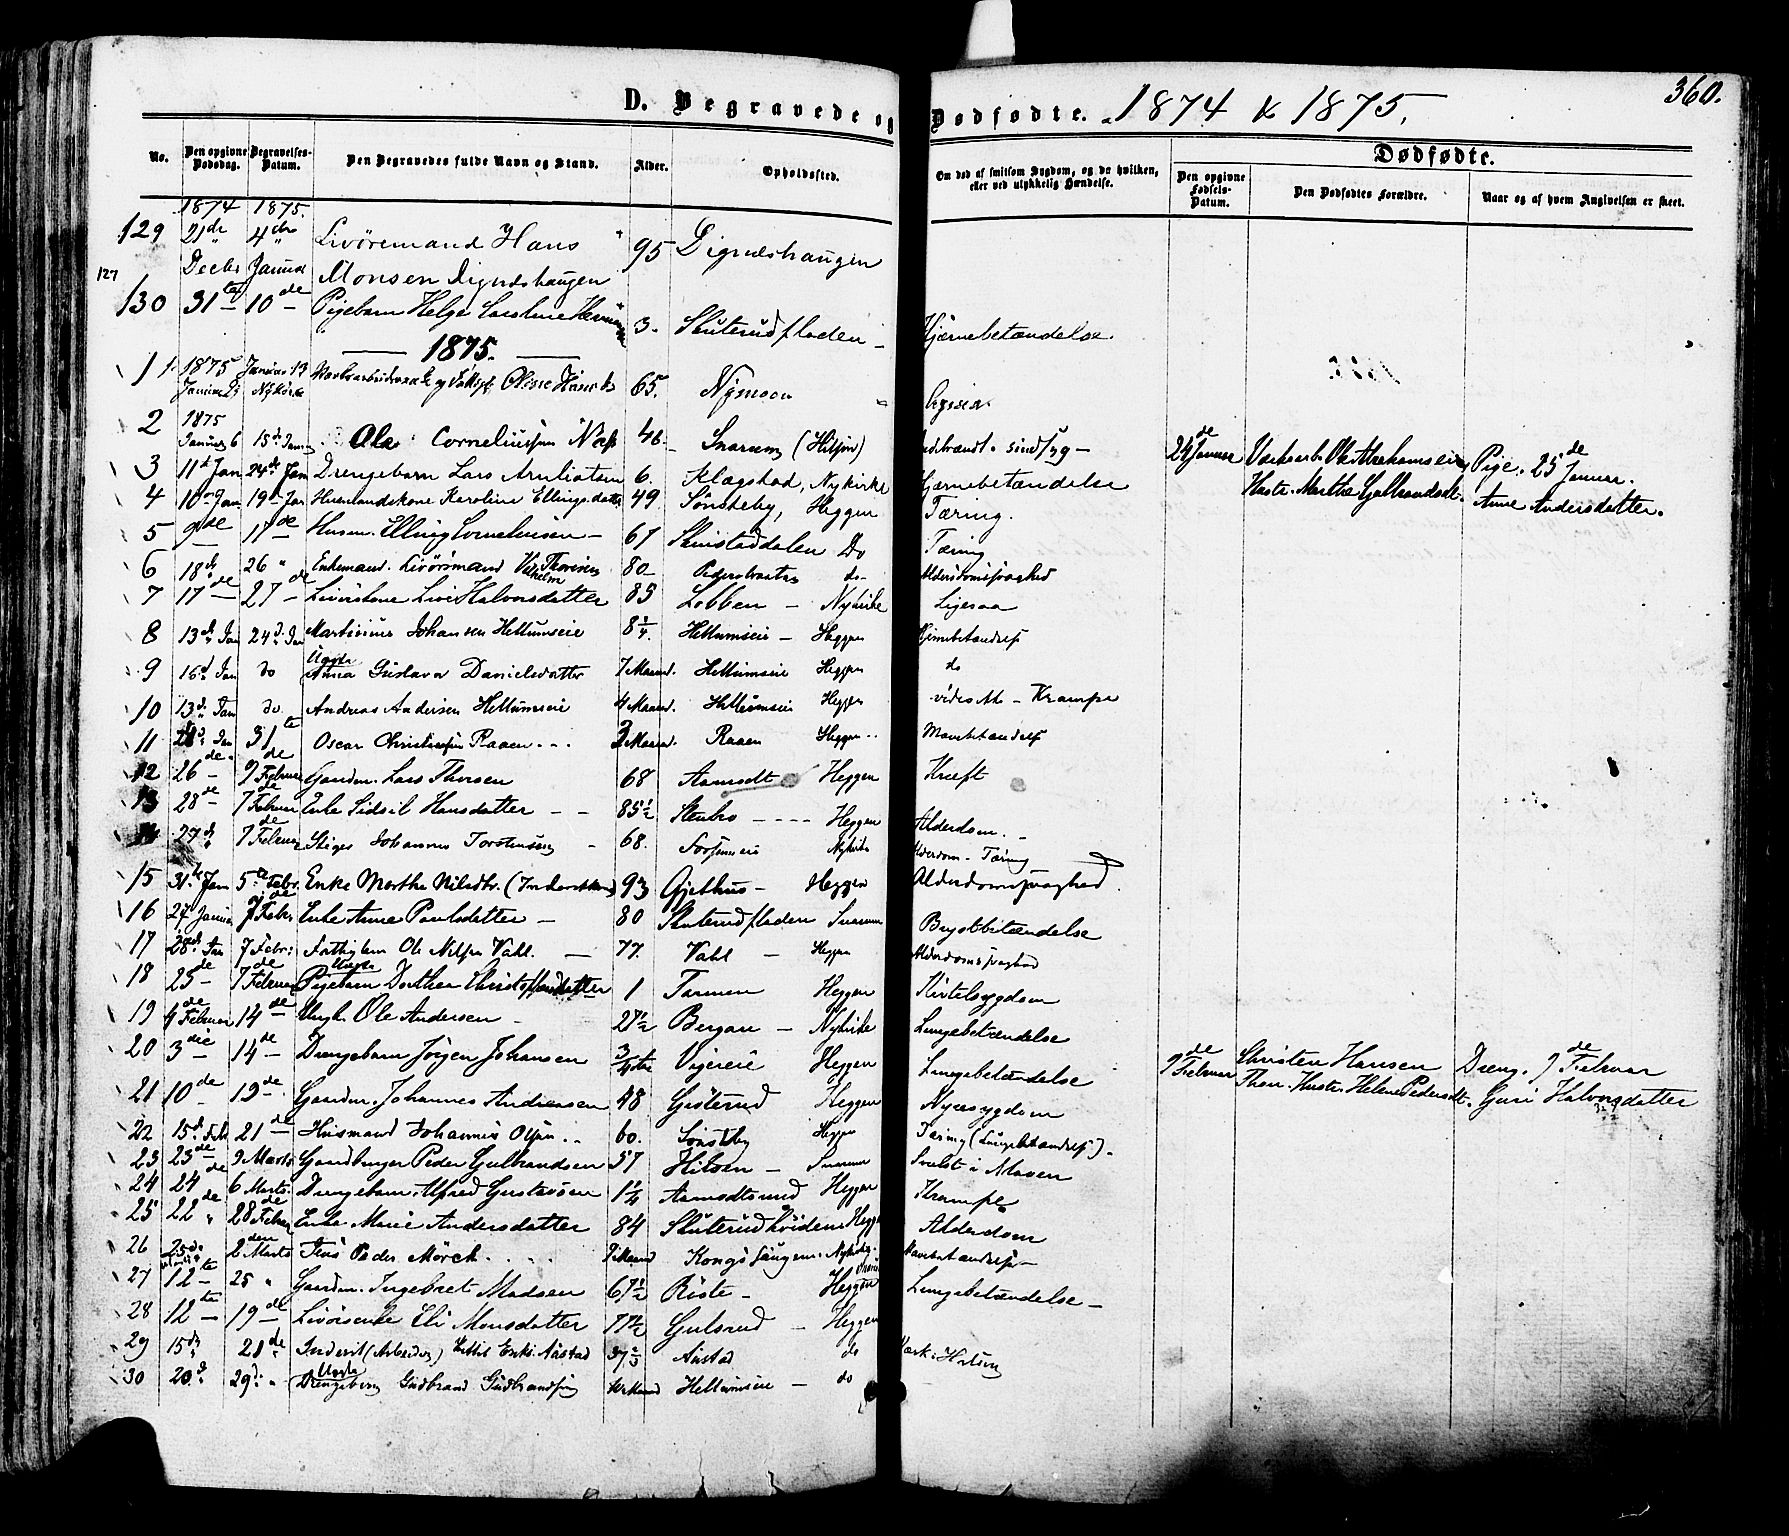 360.
D. Begravede og Dødfødte. 1874 & 1875.
No. Den opgivne Dødsdag. Begravelses-Datum. Den Begravedes fulde Navn og Stand. Alder. Opholdssted. Om død af smitsom Sygdom, og da hvilken, eller ved ulykkelig Hændelse.
Dødfødte.
Den opgivne Fødsels-Datum. Den Dødfødtes Forældre. Naar og af hvem Angivelsen er skeet.
1874 1875.
129 21de 4de Livøremand Hans 95 Digrudshaugen
Decbr Januar Monsen Digrudshaugen
127
130 31te 10de Pigebarn Helga Caroline 3. Skuterudfladen Hjernebetændelse.
1875.
1 1875 Januar 13 Nykirke Oline Hansd. 65. Nymoen
2 1875 Januar 6 15de Jan Ole Corneliussen Næss 46 Snarum sindssyg
24de Januar Ole Abrahamseie Pige. 25de Januar.
3 11te Jan 24de Jan Drengebarn Lars Arnliotsen 6. Klægstad, Nykirke Hjernebetændelse
Hustr. Marthe Gulbrandsdt. Anne Andersdatter.
4 10de Jan 19de Jan Huusmandskone Karoline Ellingsdatter 49. Sønsteby, Heggen Tæring.
5 9de 17de Husm. Elling Cornelius­en 67 Skinstaddalen Do Tæring
6 18de 26 " Enkemand. Livørsmand Vilhelm Thoresen 80 Pedersbraaten do Alderdomssvaghed
7 17de 27de Livørskone Live Halvorsdatter 85 Lobben Nykirke Ligesaa
8 13de Jan 24de Jan Martinius Johansen Hellumseie 8¼ Hellumseie Heggen Hjernebetændelse
9 16de Jan do Anna Gustava Danielsdatter 7 Maaned. Hellumseie Heggen do
10 13de Jan do Andreas Andersen Hellumseie 4 Maaned. Hellumseie Heggen Krampe
11 28de Jan 31te Oscar Christiansen Raaen 3 Maaned. Raaen Heggen Mavebetændelse
12 26de 7 Februar Gaardm. Lars Thoresen 68 Aamodt Heggen Kræft
13 28de 7de Februar Enke Sidsel Hansdatter 85½ Stenbro Heggen Alderdom.
14 27de 7de Februar Johannes Torstensen 68. Nykirke Alderdom. Tæring
15 31te Jan 5te Febr. Enke Marthe Nilsdtr. 93 Gjethus Heggen Alderdomssvaghed.
16 27 Januar 7de Febr. Enke Anne Paulsdatter 80 Skuterudfladen Snarum Brystbetændelse
17 28de Jan 7 Febr: Fattiglem Ole Nilsen Vahl. 77. Vahl Heggen Alderdomssvaghed
18 25de 7de Februar Pigebarn Dorthea Christoffersdatter 1 Tarmen Heggen Kirtelsygdom
19 4de Februar 14de Ungk. Ole Andersen 27½ Bergan Nykirke Lungebetændelse
20 3die 14de Drengebarn Jørgen Johansen ¾ Vigereie Heggen Lungebetændelse
9de Februar Christen Hansen Dreng. 9de Februar
Hustr. Helene Pedersdt. Guri Halvorsdatter
21 10de 19de Gaardm. Johannes Andreasen 48 Gisterud Heggen Nyresygdom
22 15de Feb 21de Huusmand Johannes Olsen 60. Sønsteby Heggen Tæring (Lungebetændelse).
23 23de 9 Marts Gaardbruger Peder Gulbrandsen 57 Hilsen Snarum Svulst i Maven
24 24de 6 Marts. Drengebarn. Alfred Gustavsen 1¼ Aamodtsmed Heggen Krampe
25 22de 28de Februar Enke Marie Andersdatter 84 Skuterudhøiden Heggen Alderdom
26 25de 2den Marts Jens Peder Mørch Maaned Kongssaugene. Nykirke. Mavebetændelse
27 12te 25 " Gaardm. Ingebret Madsen 67½ Riste Heggen Lungebetændelse
28 12te 19de Livørsenke Eli Monsdatter 77½ Gulsrud Heggen
29 15de 21de Inderst (Arbeider) Kittil Eriks. Aastad 37⅔ Aastad do
30 20de 29de Drengebarn Gudbrand Gudbrandsen Hellumseie do